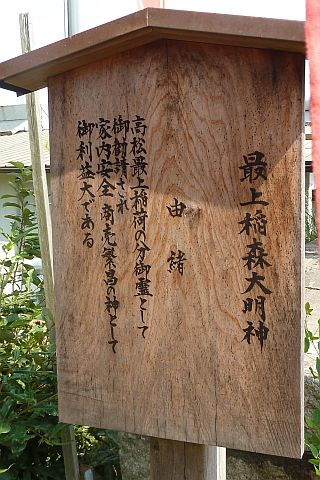 最上稲森大明神
由緒
高松最上稲荷の分御霊として
御勧請され
家内安全 商売繁昌の神として
御利益大である